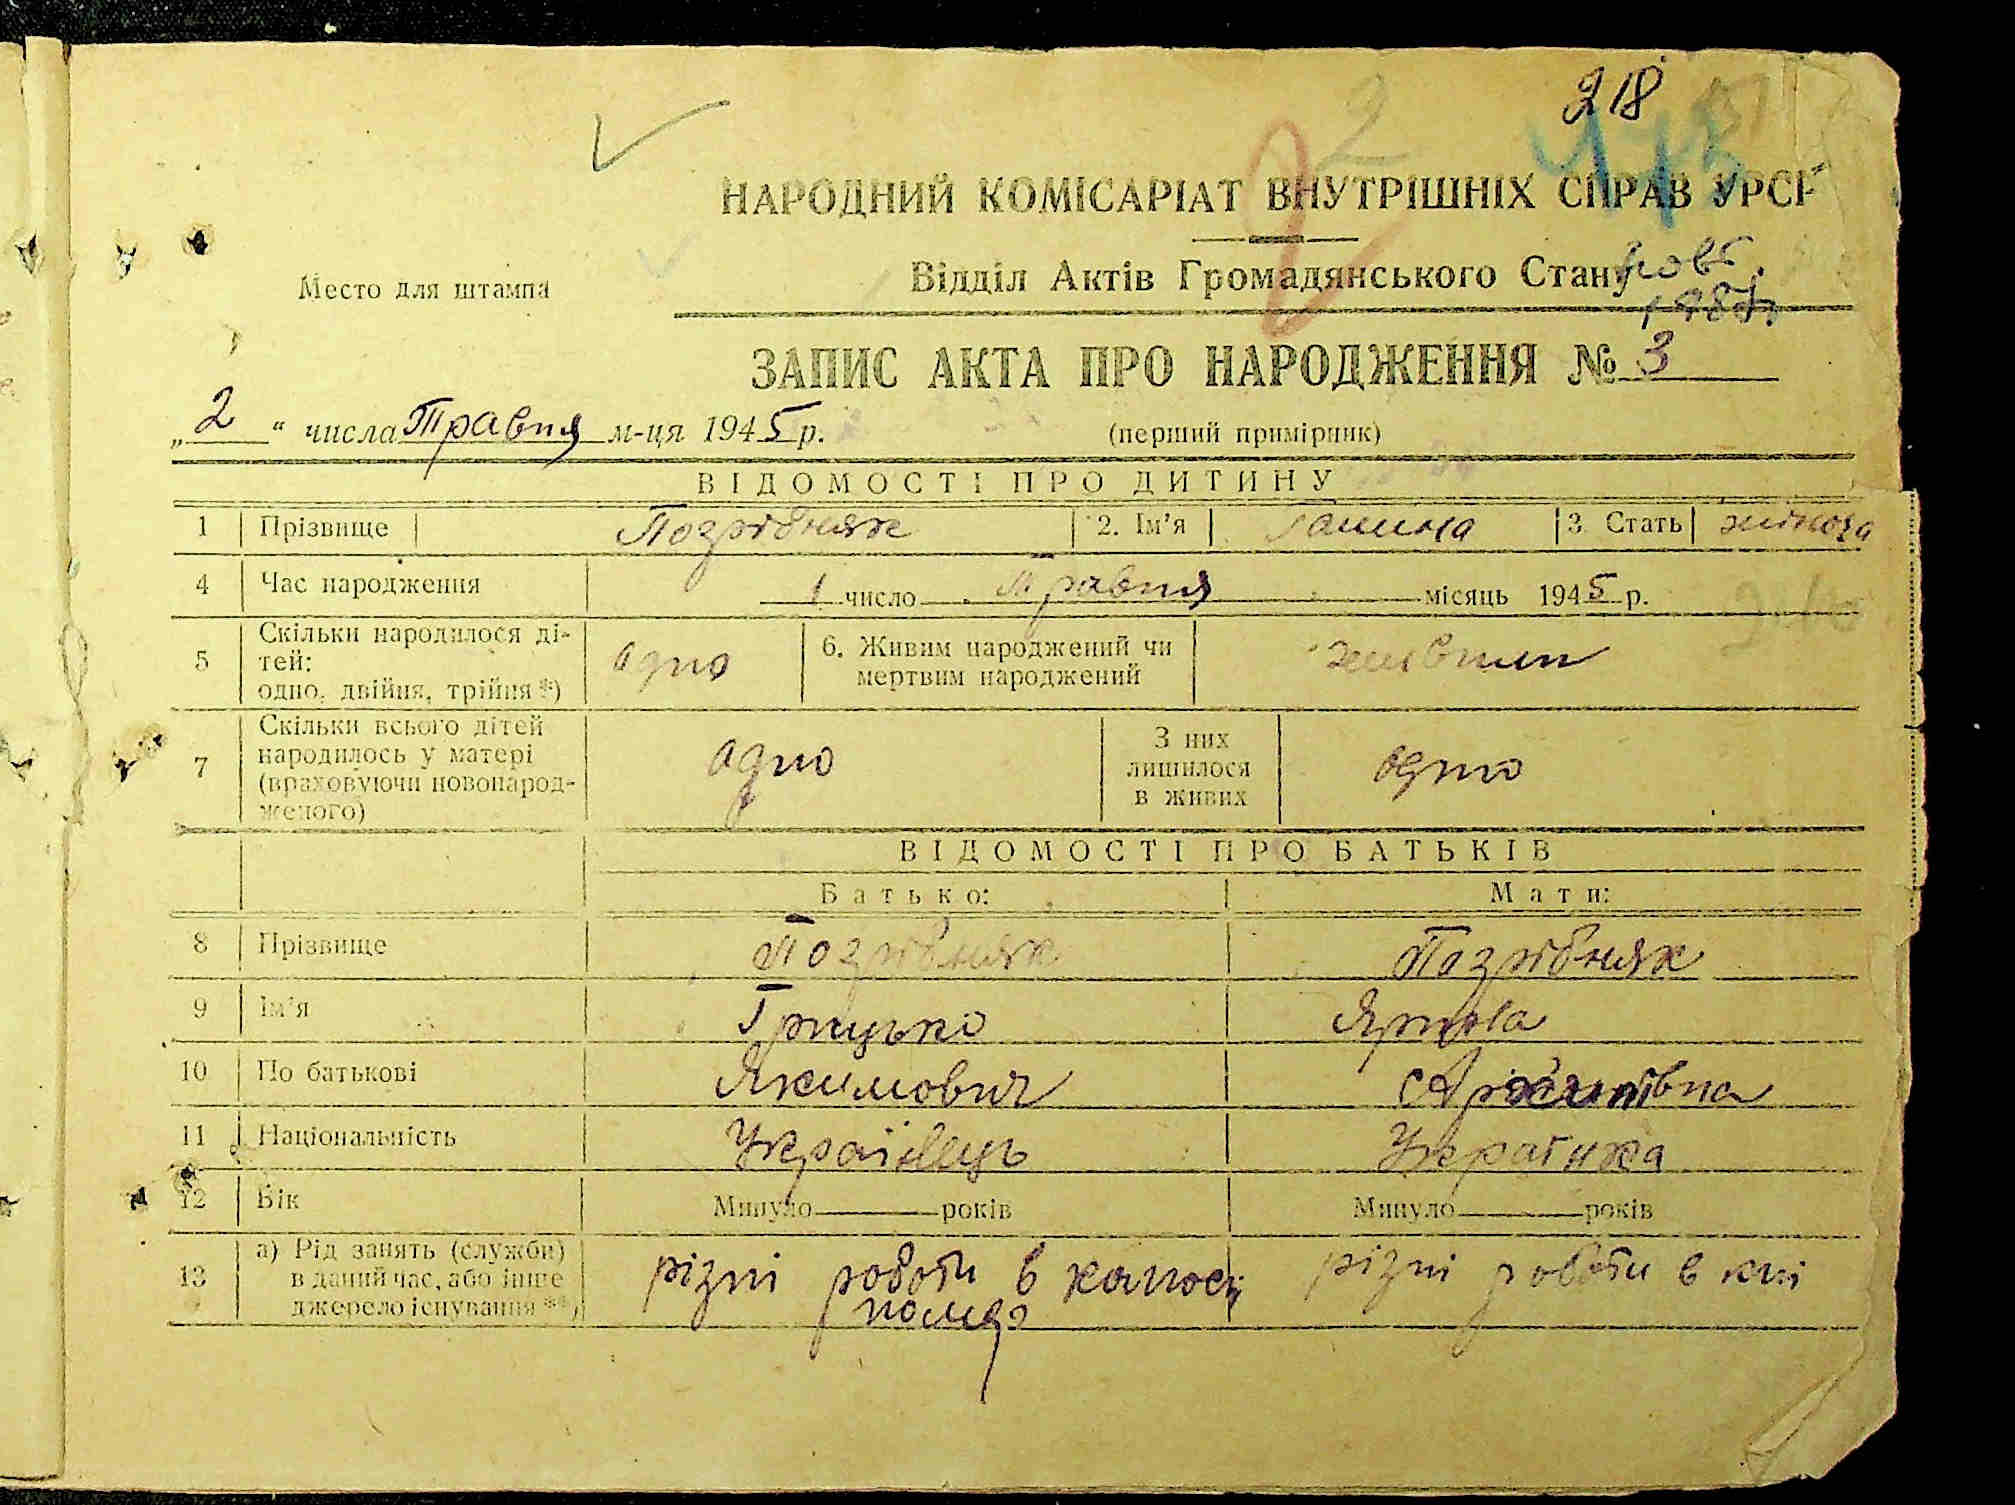 218
НАРОДНИЙ КОМІСАРІАТ ВНУТРІШНІХ СПРАВ УРСР
Место для штампа
Відділ Актів Громадянського Стану
ЗАПИС АКТА ПРО НАРОДЖЕННЯ № 3
„ 2 “ числа Травня м-ця 1945 р.
(перший примірник)
ВІДОМОСТІ ПРО ДИТИНУ
1 Прізвище Позрібняк 2. Ім'я Галина 3. Стать жіноча
4 Час народження 1 число Травня місяць 1945 р.
5 Скільки народилося ді-
тей:
одно, двійня, трійня *) одно 6. Живим народжений чи
мертвим народжений живим
7 Скільки всього дітей
народилось у матері
(враховуючи новонарод-
женого) одно З них
лишилося
в живих одно
ВІДОМОСТІ ПРО БАТЬКІВ
Батько: Мати:
8 Прізвище Позрібняк Позрібняк
9 Ім'я Грицько
10 По батькові Якимович
11 Національність Українець Українка
12 Вік Минуло років Минуло років
13 а) Рід занять (служби)
в даний час, або інше
джерело існування **) різні роботи в різні роботи в